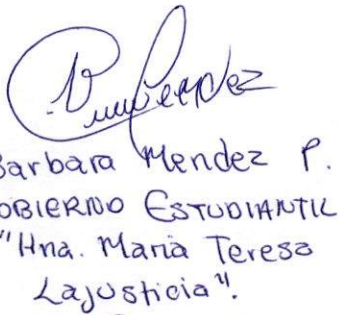 Barbara Mendez P.
GOBIERNO ESTUDIANTIL
"Hna. Maria Teresa
Lajusticia".